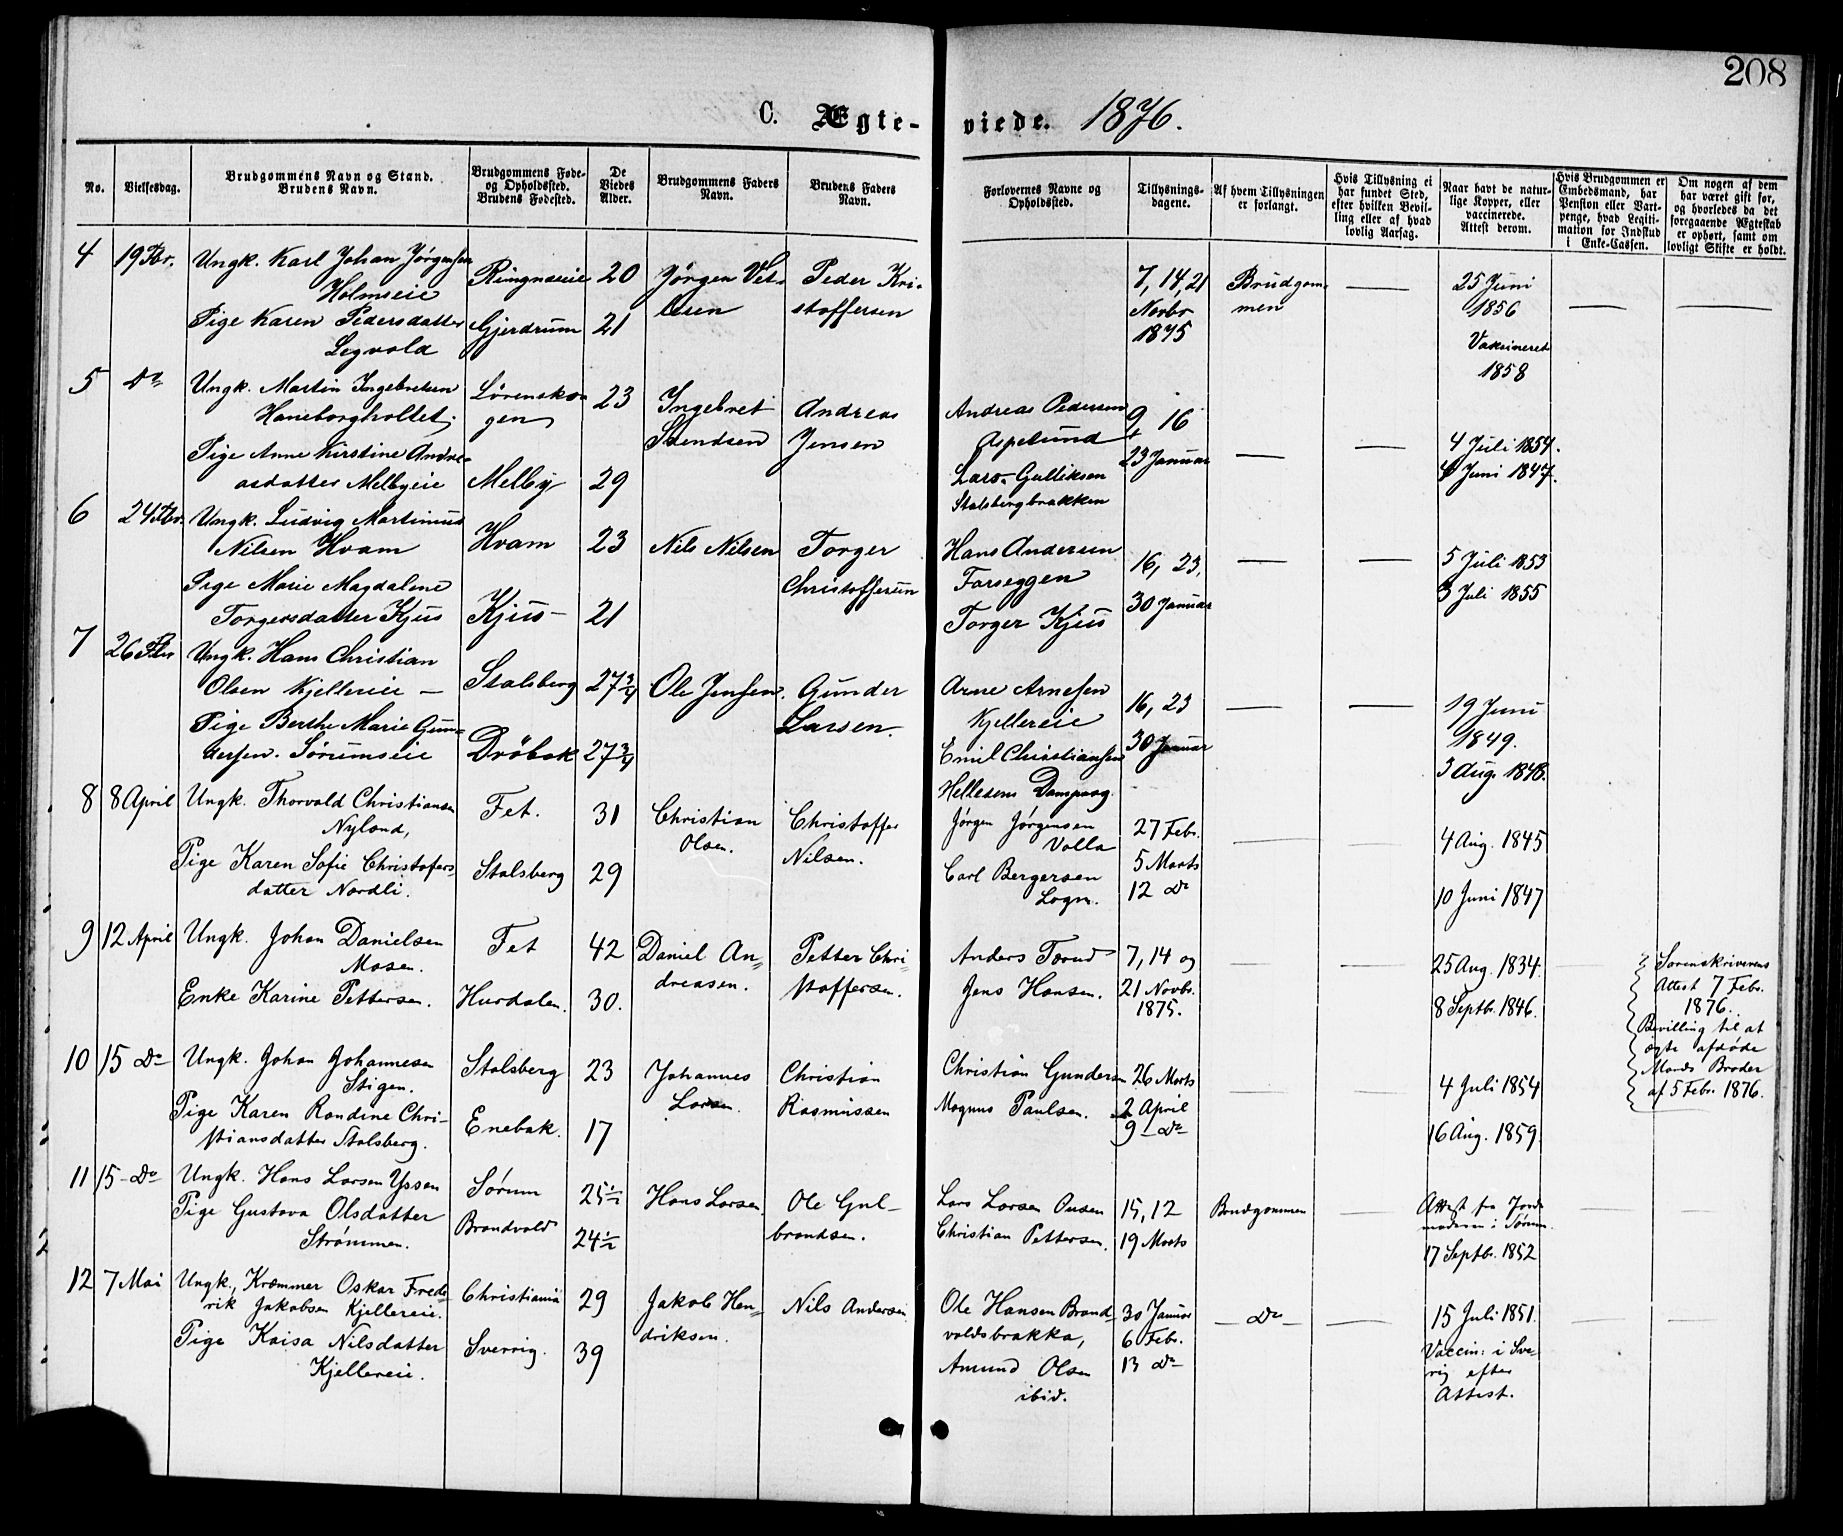 208
C. Ægte-viede. 1876.
No.
Vielsesdag.
Brudgommens Navn og Stand.
Brudens Navn.
Brudgommens Føde-
og Opholdssted.
Brudens Fødested.
De
Viedes
Alder.
Brudgommens Faders
Navn.
Brudens Faders
Navn.
Forlovernes Navne og
Opholdssted.
Tillysnings-
dagene.
Af hvem Tillysningen
er forlangt.
Hvis Tillysning ei
har fundet Sted,
efter hvilken Bevil-
ling eller af hvad
lovlig Aarsag.
Naar havt de natur-
lige Kopper, eller
vaccinerede.
Attest derom.
Hvis Brudgommen er
Embedsmand, har
Pension eller Vart-
penge, hvad Legiti-
mation for Indskud
i Enke-Cassen.
Om nogen af dem
har været gift før,
og hvorledes da det
foregaaende Ægteskab
er ophørt, samt om
lovligt Skifte er holdt.
4 19 Fbr. Ungk. Karl Johan Jørgensen
Holmseie
Ringnæseie 20 Jørgen Vet-
lesen
Peder Kri-
stoffersen
7, 14, 21
Novbr
1875
Brudgom-
men
25 Juni
1856
Pige Karen Pedersdatter
Legvold
Gjerdrum 21
Vaksineret
1858
5 Do Ungk. Martin Ingebretsen
Haneborgholtet.
Lørensko-
gen
23 Ingebret
Svendsen
Andreas
Jensen
Andreas Pedersen
Aspelund
9 16
23 Januar
4 Juli 1854.
Pige Anne Kirstine Andre-
asdatter Melbyeie
Melby 29
Lars Gulliksen
Stalsbergbrakken
4 Juni 1847.
6 24 Fbr. Ungk. Ludvig Martinius
Nilsen Hvam
Hvam 23 Nils Nilsen Torger
Christoffersen
Hans Andersen
Farseggen
16, 23,
30 Januar
5 Juli 1853
Pige Marie Magdalene
Torgersdatter Kjus
Kjus 21
Torger Kjus
3 Juli 1855
7 26 Fbr Ungk. Hans Christian
Olsen Kjellereie
Stalsberg 27 3/4 Ole Jensen. Gunder
Larsen.
Arne Arnesen
Kjellereie
16, 23
30 Januar
19 Juni
1849.
Pige Berthe Marie Gun-
dersen. Sørumseie
Drøbak 27 3/4
Emil Christiansen
Hellesens Dampsag.
3 Aug. 1848.
8 8 April Ungk. Thorvald Christiansen
Nyland,
Fet. 31 Christian
Olsen.
Christoffer
Nilsen.
Jørgen Jørgensen
Volla
27 Febr.
5 Marts
12 Do
4 Aug. 1845
Pige Karen Sofie Christofers-
datter Nordli.
Stalsberg 29
Carl Bergersen
Logn.
10 Juni 1847
9 12 April Ungk. Johan Danielsen
Mosen.
Fet 42 Daniel An-
dreasen.
Petter Chri-
stoffersen.
Anders Torud
Jens Hansen.
7, 14 og
21 Novbr.
1875.
25 Aug. 1834.
Enke Karine Pettersen. Hurdalen. 30.
8 Septb. 1846.
Sorenskriverens
Attest 7 Febr.
1876.
Bevilling til at
ægte afdøde
Mands Broder
af 5 Febr. 1876.
10 15 Do Ungk. Johan Johannesen
Stigen.
Stalsberg 23 Johannes
Larsen.
Christian
Rasmussen
Christian Gundersen
Magnus Paulsen.
26 Marts
2 April
9 Do
4 Juli 1854
Pige Karen Randine Chri-
stiansdatter Stalsberg.
Enebak. 17
16 Aug. 1859.
11 15 Do Ungk. Hans Larsen Yssen
Sørum 25 1/2 Hans Larsen Ole Gul-
brandsen.
Lars Larsen Ousen
Christian Pettersen.
15, 12
19 Marts
Brudgommen
Attest fra Jorde-
moderen i Sørum.
Pige Gustava Olsdatter
Strømmen.
Brandvold 24 1/2
17 Septb. 1852
12 7 Mai Ungk., Kræmmer Oskar Frede-
rik Jakobsen Kjellereie.
Christiania 29 Jakob Hen-
driksen.
Nils Andersen
Ole Hansen Brand-
voldsbrakka,
Amund Olsen
ibid.
30 Januar
6 Febr.
13 Do
Do
15 Juli 1851.
Pige Kaisa Nilsdatter
Kjellereie.
Sverrig. 39
Vaccin: i Sve-
rig efter
Attest.